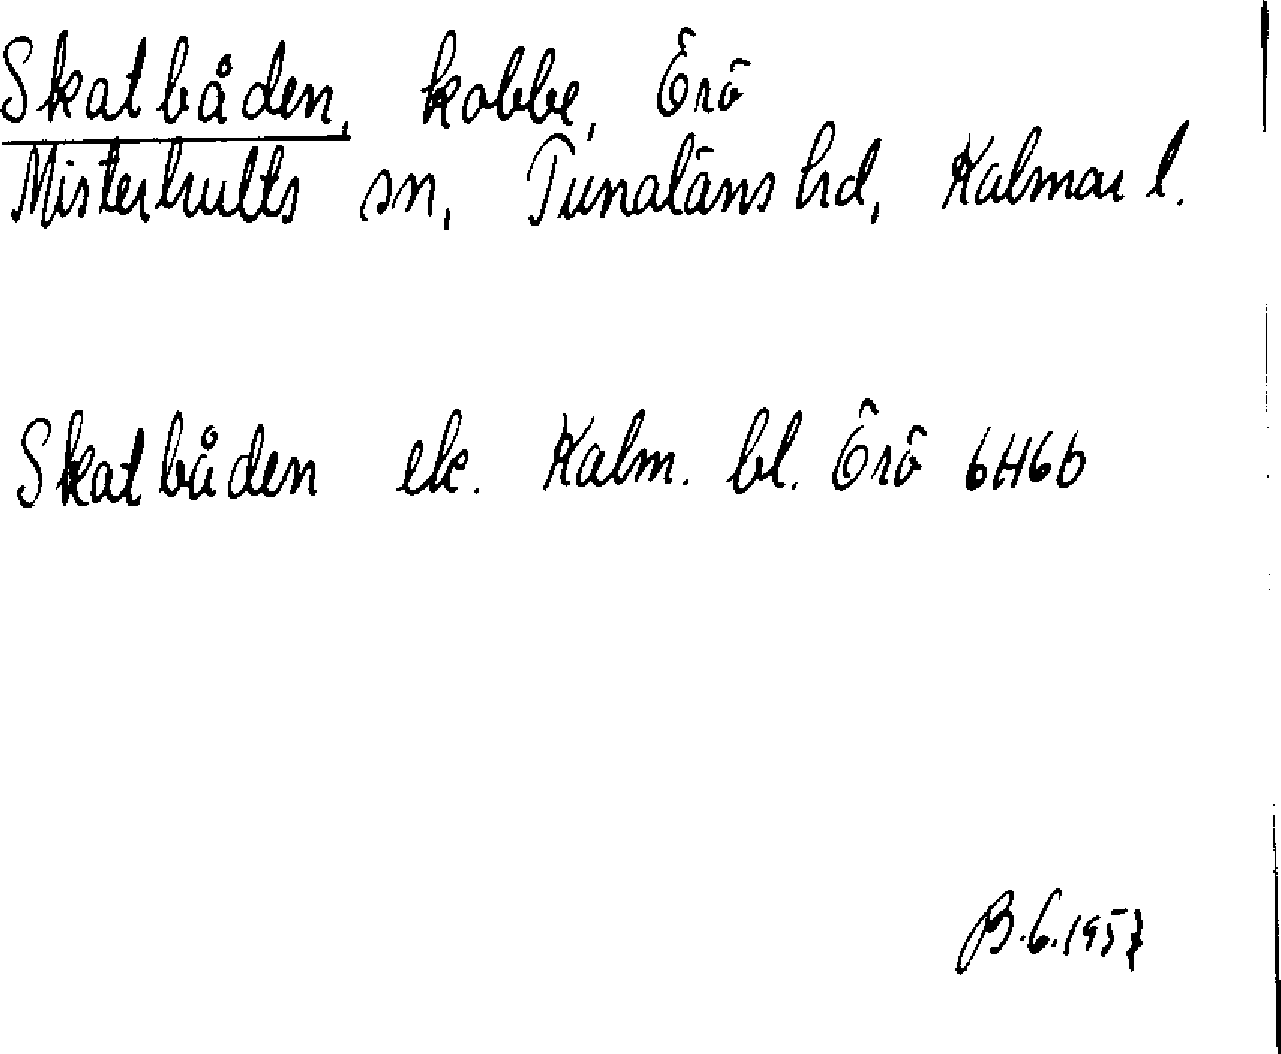 Skatbåden, kobbe, Örö
Misterhults sn, Tunaläns hd, Kalmar l.
Skatbåden ek. Kalm. bl. Örö 6H6b
B.G. 1957